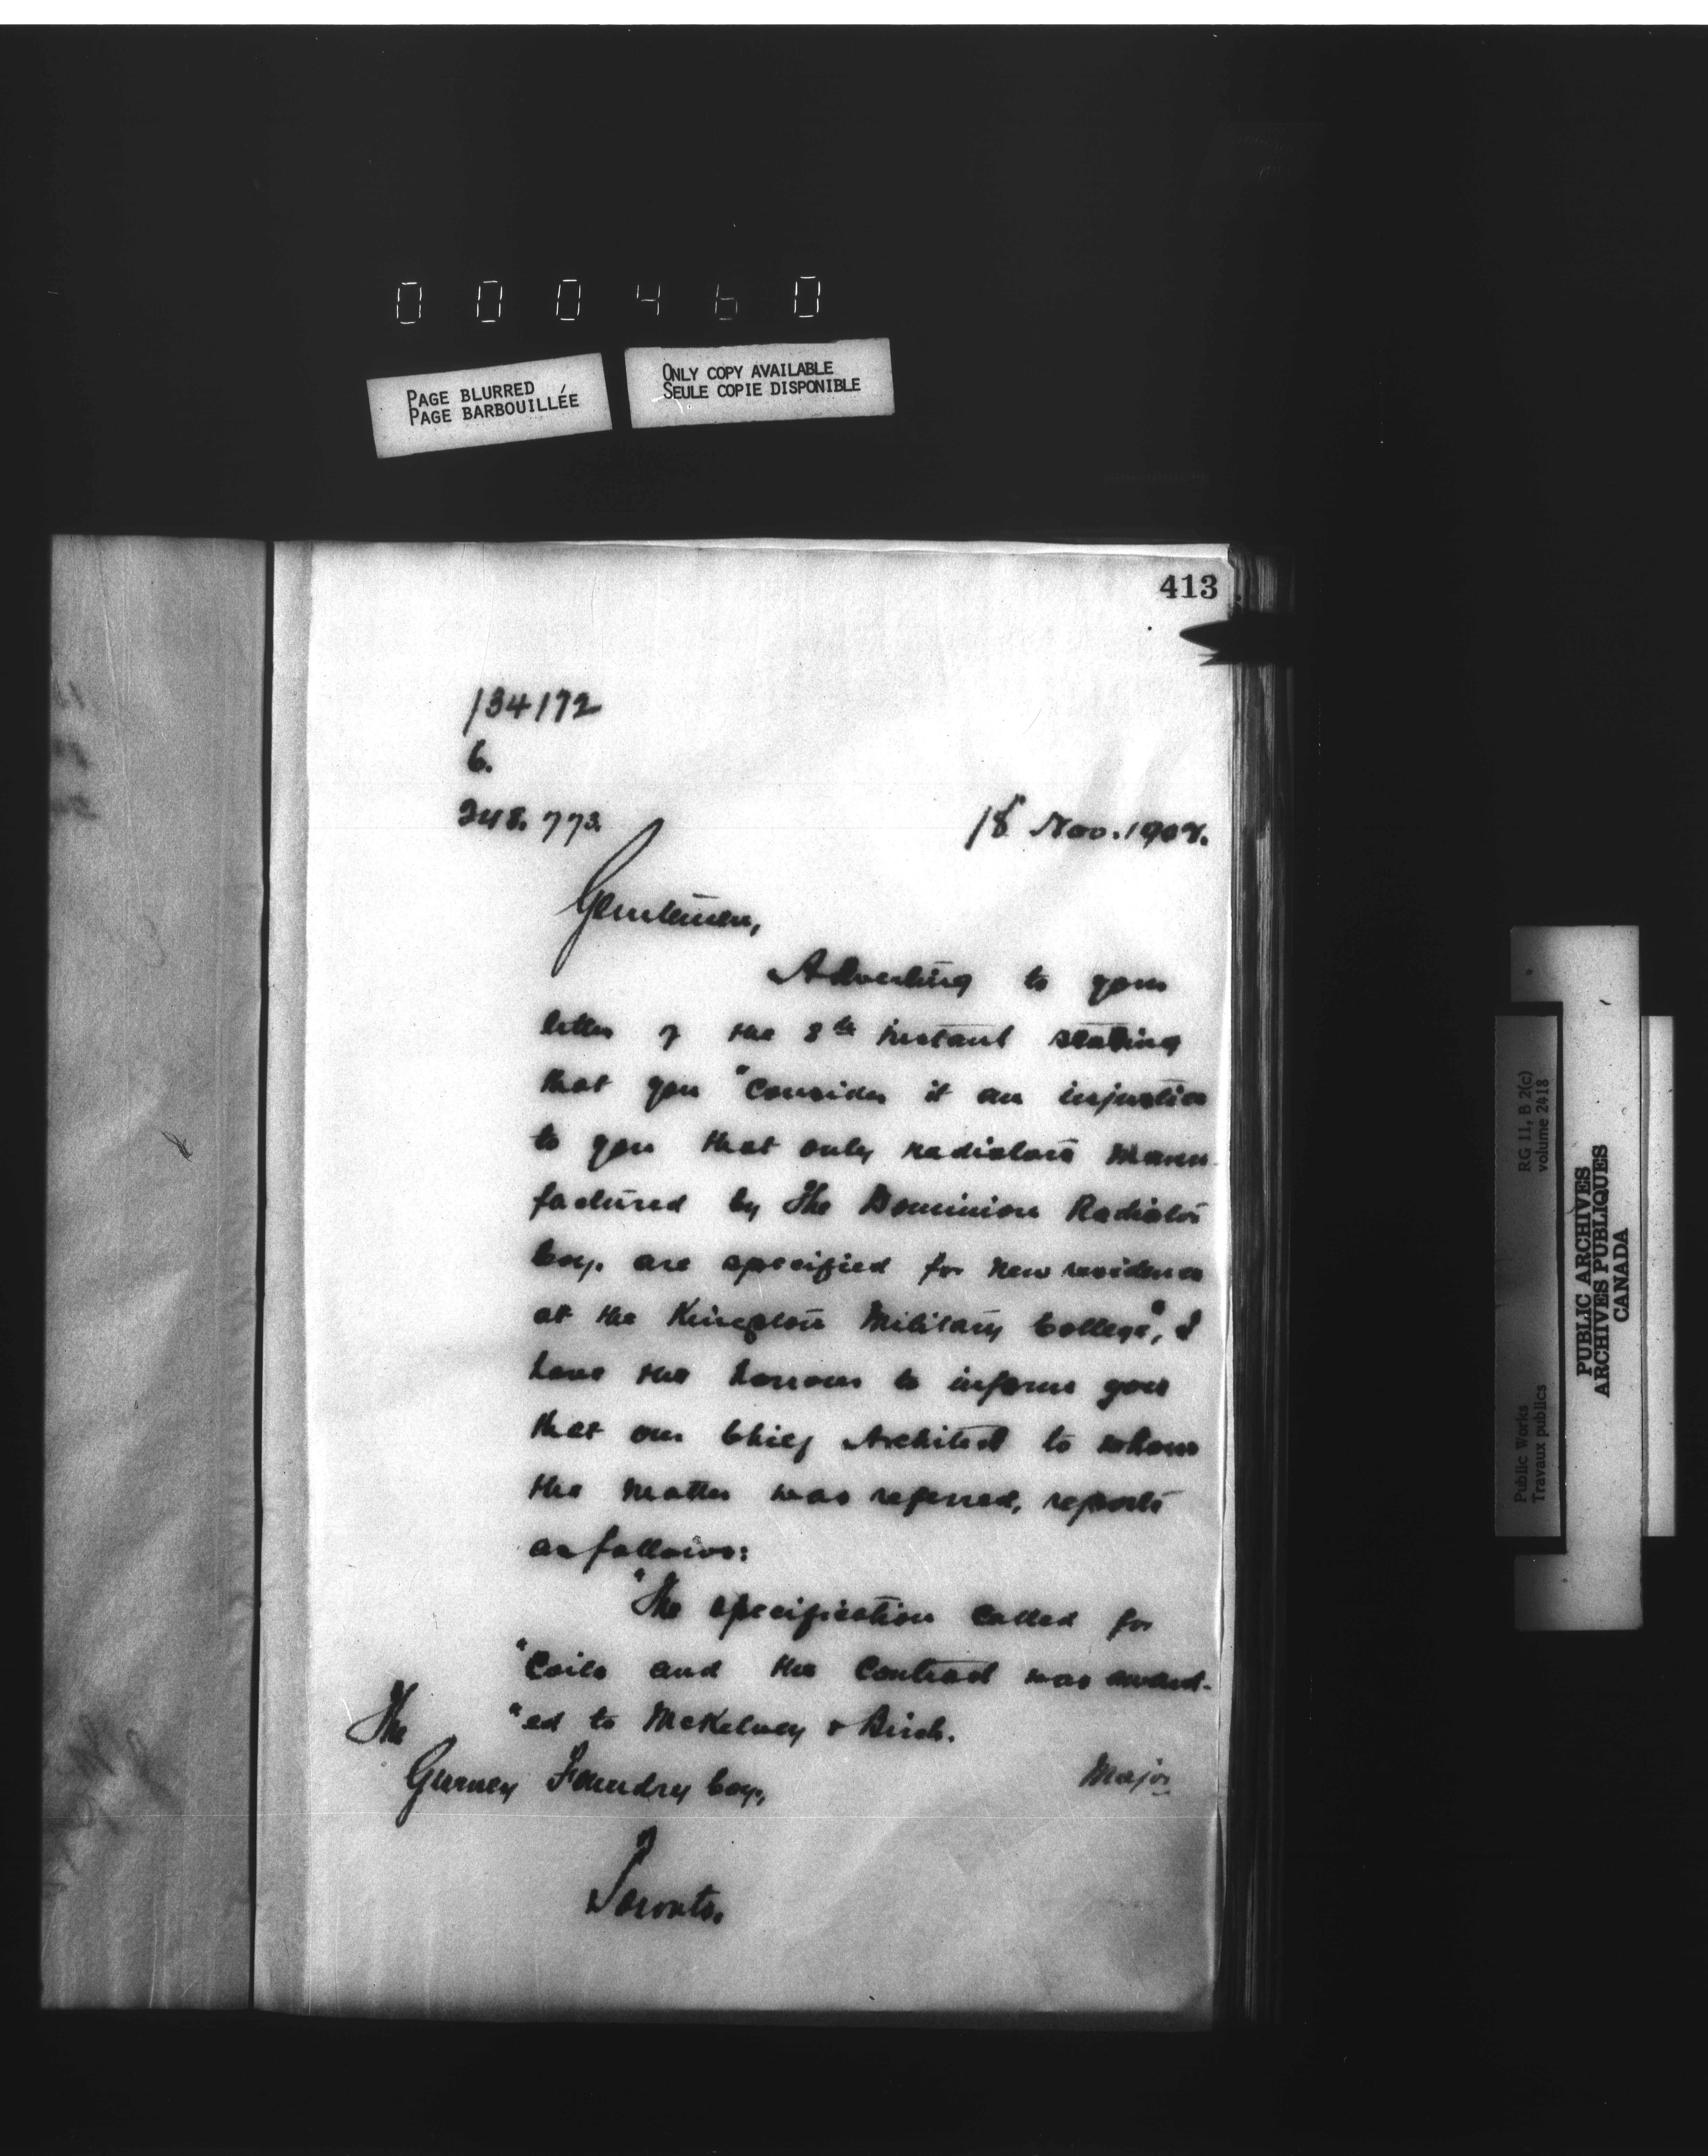 000460
PAGE BLURRED
PAGE BARBOUILLÉE
ONLY COPY AVAILABLE
SEULE COPIE DISPONIBLE
413
134172
6.
248.773.
18 Nov. 1908.
Gentlemen,
Adverting to your
letter of the 8th instant stating
that you "consider it an injustice
to you that only radiators manu-
factured by the Dominion Radiator
Coy. are specified for new residence
at the Kingston Military College", I
have the honour to inform you
that our Chief Architect to whom
the matter was referred, reports
as follows:
"The specification called for
"Coils and the contract was award-
"ed to McKelvey & Birch.
The
Gurney Foundry Coy.,
Toronto.
Major
RG 11, B 2(c)
volume 2418
Public Works
Travaux publics
PUBLIC ARCHIVES
ARCHIVES PUBLIQUES
CANADA